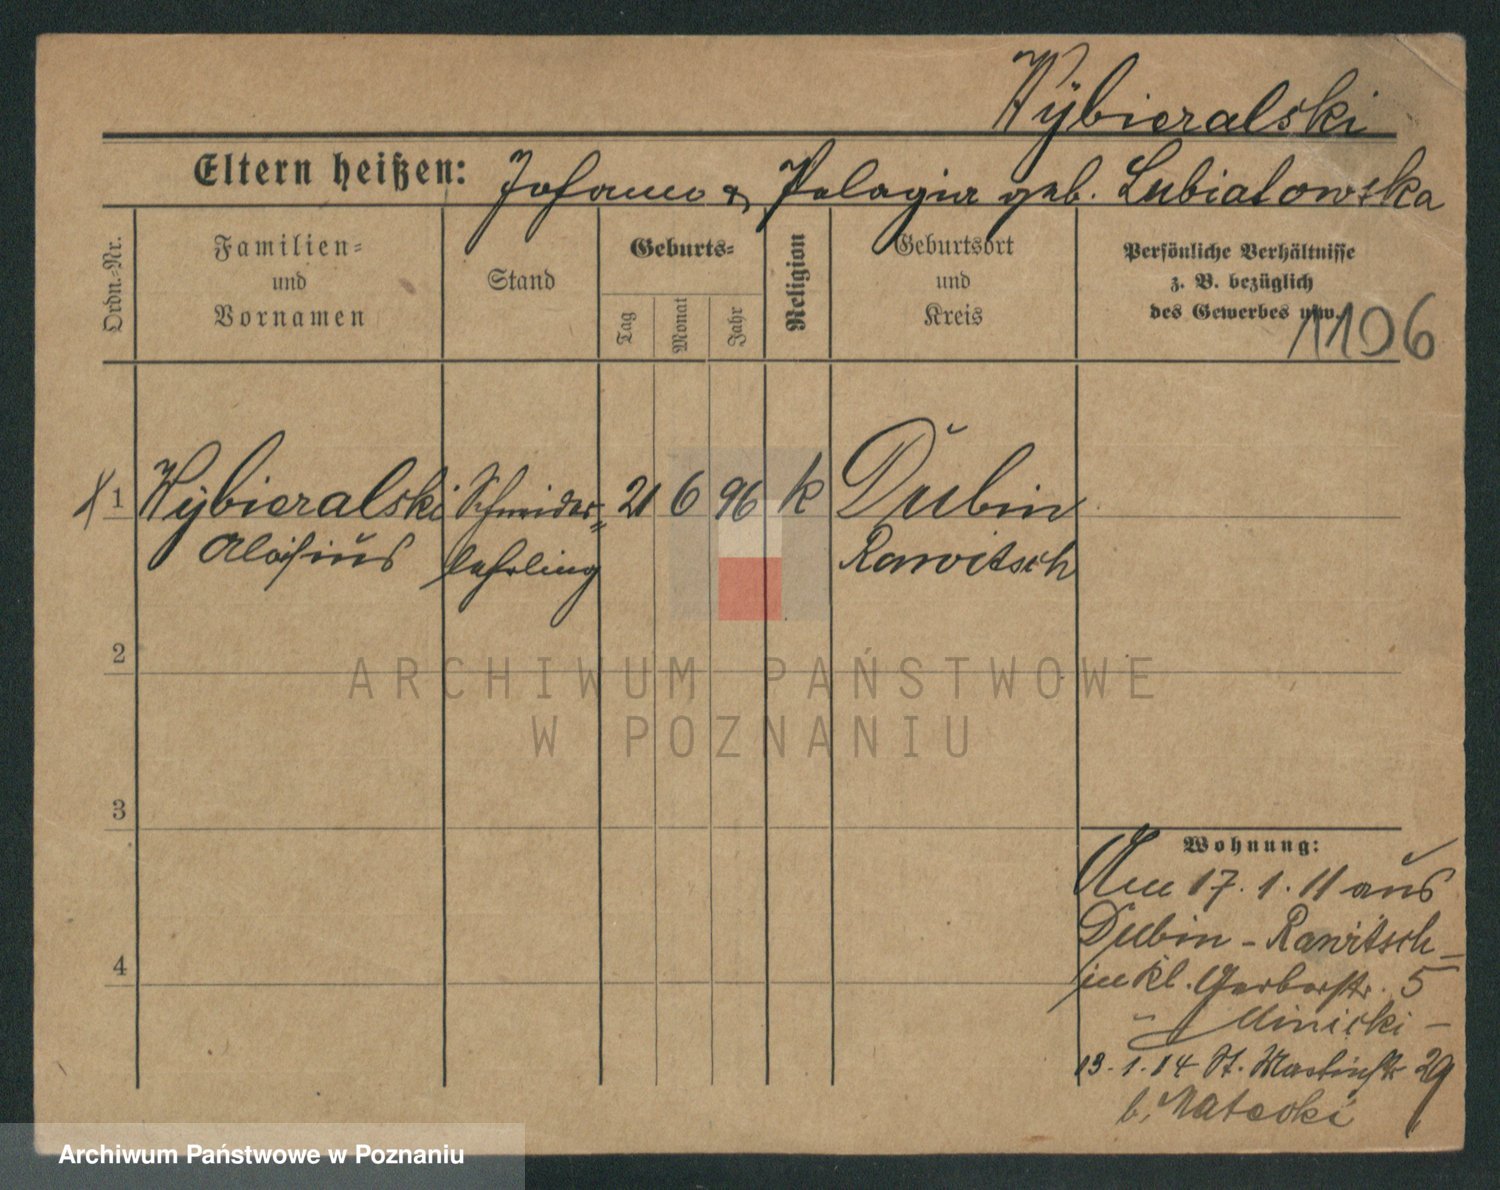 Wÿbieralski
Eltern heißen: Johann & Pelagia geb. Lubiatowska
Ordn.-Nr.
Familien-
und
Vornamen
Stand
Geburts-
Tag
Monat
Jahr
Religion
Geburtsort
und
Kreis
Persönliche Verhältnisse
z. B. bezüglich
des Gewerbes usw.
1106
1 Wÿbieralski Schneider= 21 6 96 k Dubin
Aloÿsius lehrling Rawitsch
2
3
4
ARCHIWUM PAŃSTWOWE
W POZNANIU
Wohnung:
Am 17. 1. 11 aus
Dubin - Rawitsch -
in kl. Gerberstr. 5
Minicki -
13. 1. 14 St. Martinstr 29
b.
Archiwum Państwowe w Poznaniu